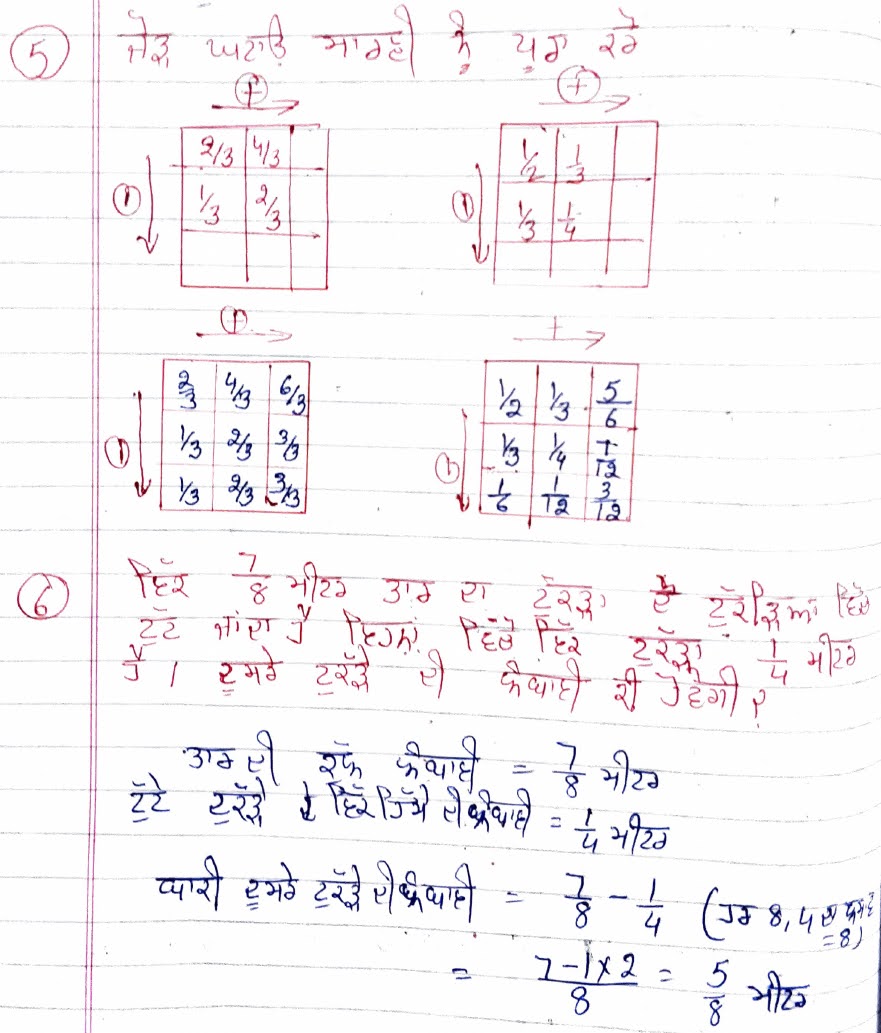 5 ਜੋੜ ਘਟਾਓ ਸਾਰਣੀ ਨੂੰ ਪੂਰਾ ਕਰੋ
+ +
2/3 4/3
1/3 2/3
1/2 1/3
1/3 1/4
+ +
2/3 4/3 6/3
1/3 2/3 3/3
1/3 2/3 3/3
1/2 1/3 5/6
1/3 1/4 7/12
1/6 1/12 3/12
6 ਇੱਕ 7/8 ਮੀਟਰ ਤਾਰ ਦਾ ਟੁੱਕੜਾ ਦੋ ਟੁੱਕੜਿਆਂ ਵਿੱਚ
ਟੁੱਟ ਜਾਂਦਾ ਹੈ ਇਹਨਾਂ ਵਿੱਚੋਂ ਇੱਕ ਟੁੱਕੜਾ 1/4 ਮੀਟਰ
ਹੈ । ਦੂਸਰੇ ਟੁਕੱੜੇ ਦੀ ਲੰਬਾਈ ਕੀ ਹੋਵੇਗੀ ?
ਤਾਰ ਦੀ ਕੁੱਲ ਲੰਬਾਈ = 7/8 ਮੀਟਰ
ਟੁੱਟੇ ਟੁਕੱੜੇ ਦੇ ਇੱਕ ਹਿੱਸੇ ਦੀ ਲੰਬਾਈ = 1/4 ਮੀਟਰ
ਬਾਕੀ ਦੂਸਰੇ ਟੁਕੱੜੇ ਦੀ ਲੰਬਾਈ = 7/8 - 1/4 (ਹਰ 8, 4 ਦਾ ਲ.ਸ.ਵ = 8)
= 7-1×2/8 = 5/8 ਮੀਟਰ